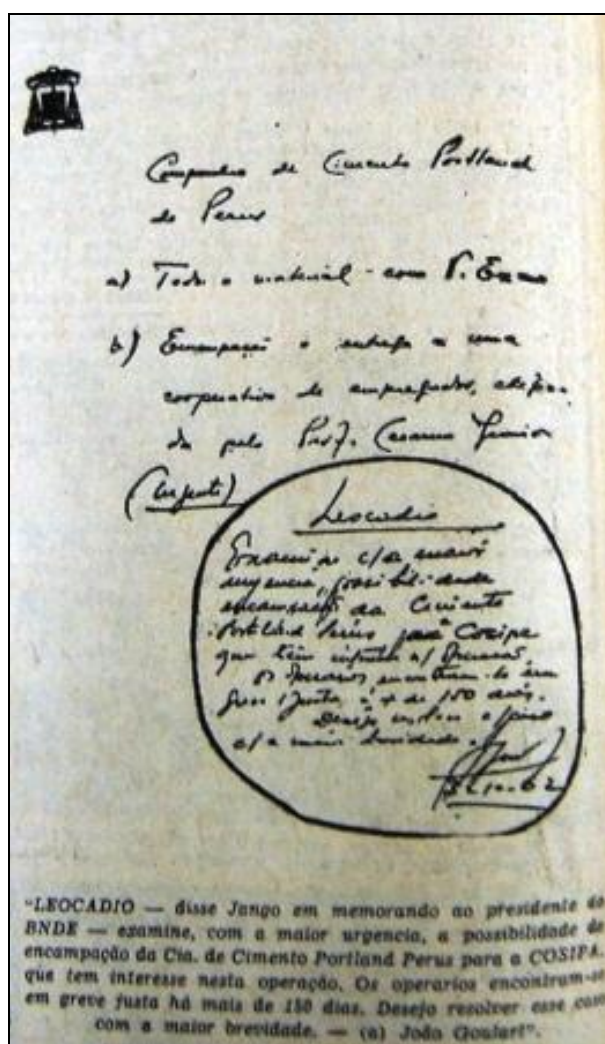 Companhia de Cimento Portland
de Perus
a) Todo o material - com V. Exma
b) Encampação e entrega a uma
cooperativa de empregados, chefia
da pelo Prof. Cesarino Junior
(Urgente)
Leocadio
Examine c/a maior
urgencia, possibilidade
encampação da Cimento
Portland Perús para Cosipa
que tem interesse n/ operação
Os operarios encontram-se em
greve justa á + de 150 dias.
Desejo resolver o
c/a maior brevidade.
"LEOCADIO — disse Jango em memorando ao presidente do
BNDE — examine, com a maior urgencia, a possibilidade de
encampação da Cia. de Cimento Portland Perus para a COSIPA,
que tem interesse nesta operação. Os operarios encontram-se
em greve justa há mais de 150 dias. Desejo resolver esse caso
com a maior brevidade. — (a) João Goulart".